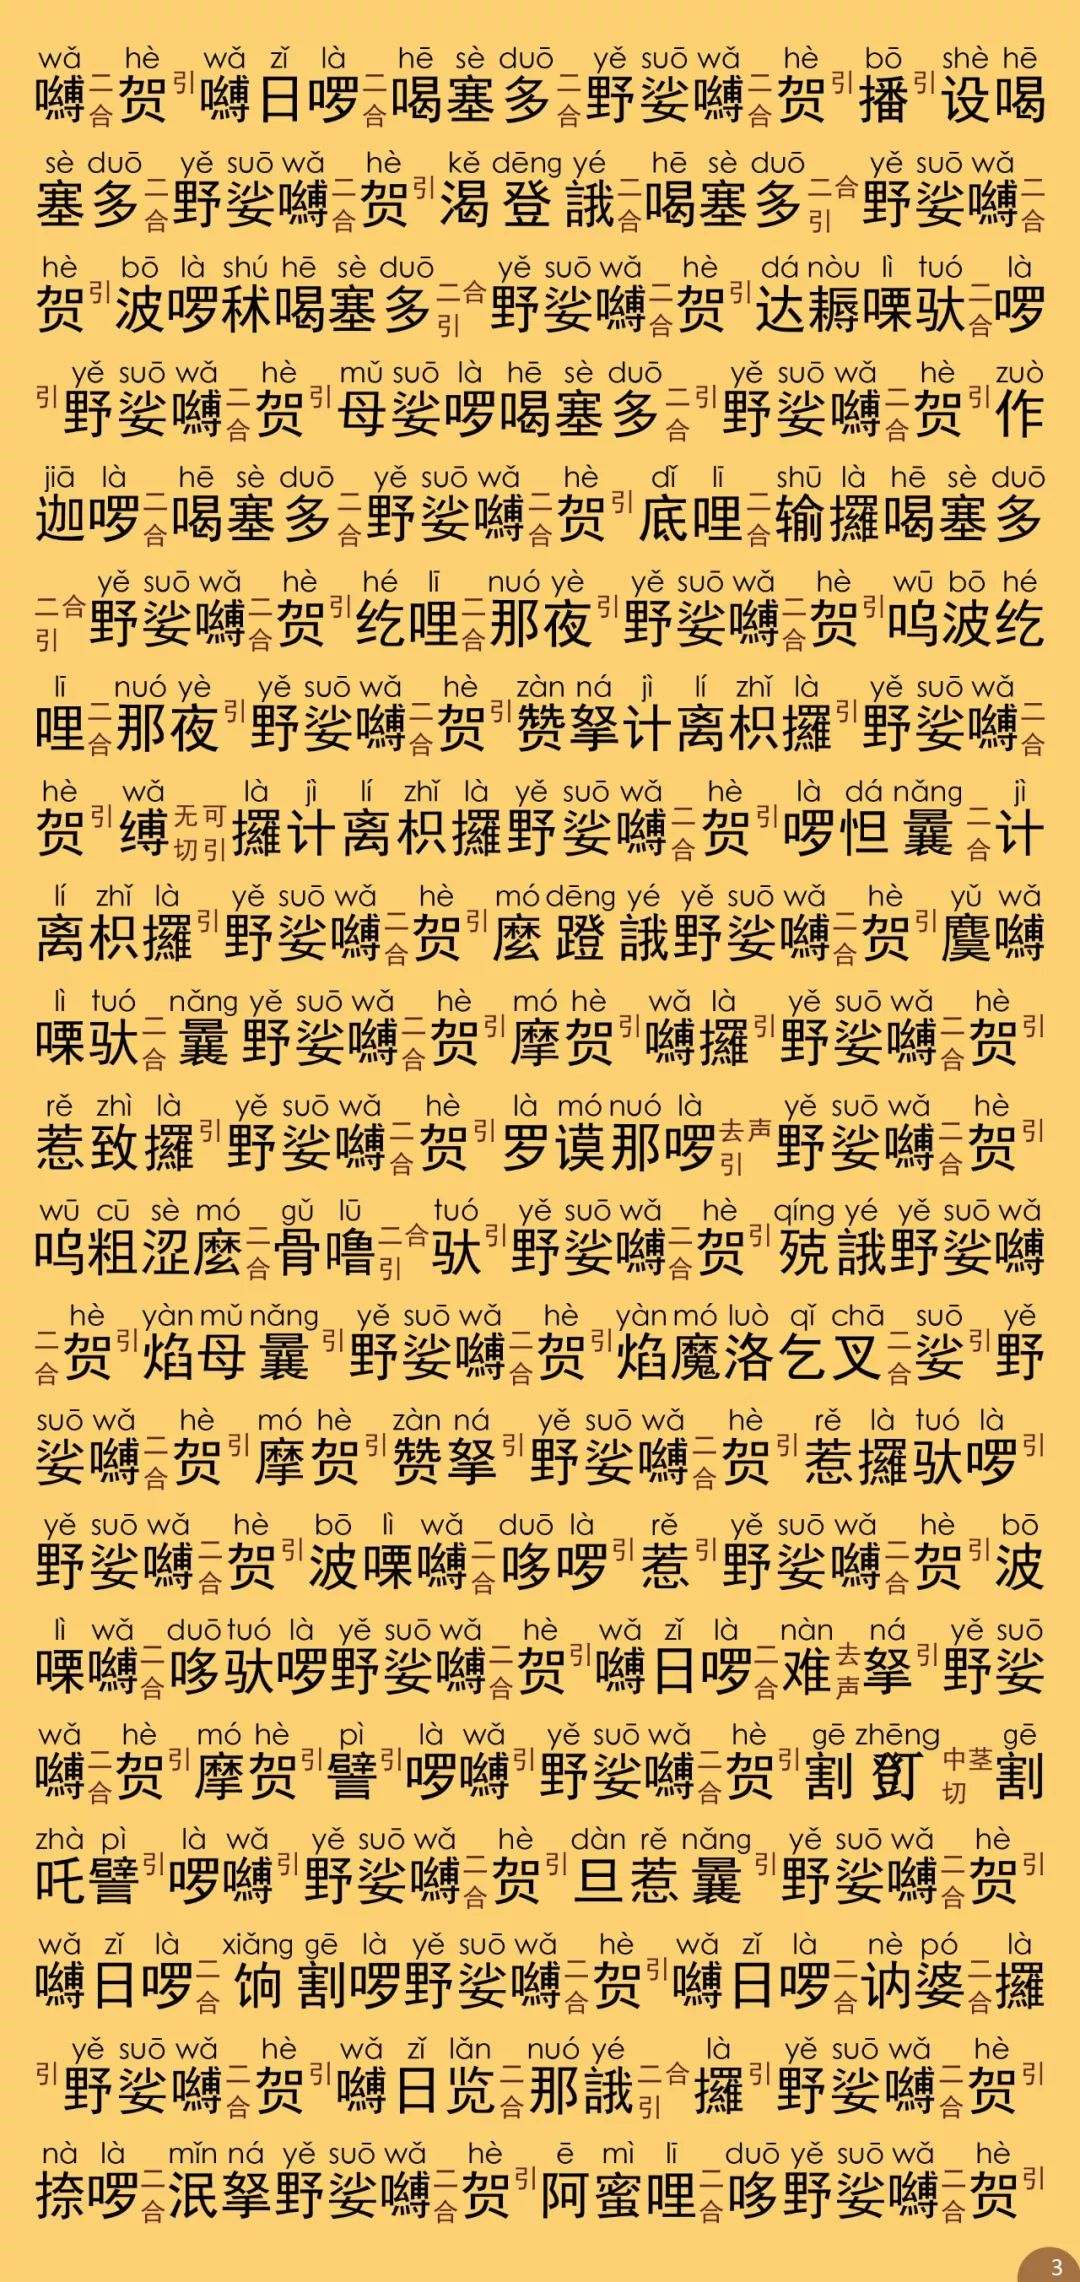 wǎ hè wǎ zǐ là hē sè duō yě suō wǎ hè bō shè hē
嚩二合贺引嚩日啰二合喝塞多二合野娑嚩二合贺引播引设喝
sè duō yě suō wǎ hè kě dēng yé hē sè duō yě suō wǎ
塞多二合野娑嚩二合贺引渴登誐二合喝塞多二合引野娑嚩二合
hè bō là shú hē sè duō yě suō wǎ hè dá nòu lì tuó là
贺引波啰秫喝塞多二合引野娑嚩二合贺引达耨㗚驮二合啰
yě suō wǎ hè mǔ suō là hē sè duō yě suō wǎ hè zuò
引野娑嚩二合贺引母娑啰喝塞多二合引野娑嚩二合贺引作
jiā là hē sè duō yě suō wǎ hè dǐ lī shū là hē sè duō
迦啰二合喝塞多二合野娑嚩二合贺引底哩二合输攞喝塞多
yě suō wǎ hè hé lī nuó yè yě suō wǎ hè wū bō hé
二合引野娑嚩二合贺引纥哩二合那夜引野娑嚩二合贺引呜波纥
lī nuó yè yě suō wǎ hè zàn ná jì lí zhǐ là yě suō wǎ
哩二合那夜引野娑嚩二合贺引赞拏计离枳攞引野娑嚩二合
hè wǎ là jì lí zhǐ là yě suō wǎ hè là dá nǎng jì
贺引缚无可切引攞计离枳攞野娑嚩二合贺引啰怛曩二合计
lí zhǐ là yě suō wǎ hè mó dēng yé yě suō wǎ hè yǔ wǎ
离枳攞引野娑嚩二合贺引麽蹬誐野娑嚩二合贺引麌嚩
lì tuó nǎng yě suō wǎ hè mó hè wǎ là yě suō wǎ hè
㗚驮二合曩野娑嚩二合贺引摩贺引嚩攞引野娑嚩二合贺引
rě zhì là yě suō wǎ hè là mó nuó là yě suō wǎ hè
惹致攞引野娑嚩二合贺引罗谟那啰去声引野娑嚩二合贺引
wū cū sè mó gǔ lū tuó yě suō wǎ hè qíng yé yě suō wǎ
呜粗涩麽二合骨噜二合引驮引野娑嚩二合贺引殑誐野娑嚩
hè yàn mǔ nǎng yě suō wǎ hè yàn mó luò qǐ chā suō yě
二合贺引焰母曩引野娑嚩二合贺引焰魔洛乞叉二合娑引野
suō wǎ hè mó hè zàn ná yě suō wǎ hè rě là tuó là
娑嚩二合贺引摩贺引赞拏引野娑嚩二合贺引惹攞驮啰引
yě suō wǎ hè bō lì wǎ duō là rě yě suō wǎ hè bō
野娑嚩二合贺引波㗚嚩二合哆啰引惹引野娑嚩二合贺引波
lì wǎ duō tuó là yě suō wǎ hè wǎ zǐ là nàn ná yě suō
㗚嚩二合哆驮啰野娑嚩二合贺引嚩日啰二合难去声拏引野娑
wǎ hè mó hè pì là wǎ yě suō wǎ hè gē zhēng gē
嚩二合贺引摩贺引譬引啰嚩引野娑嚩二合贺引割䥭中茎切割
zhà pì là wǎ yě suō wǎ hè dàn rě nǎng yě suō wǎ hè
吒譬引啰嚩引野娑嚩二合贺引旦惹曩引野娑嚩二合贺引
wǎ zǐ là xiǎng gē là yě suō wǎ hè wǎ zǐ là nè pó là
嚩日啰二合饷割啰野娑嚩二合贺引嚩日啰二合讷婆二合攞
yě suō wǎ hè wǎ zǐ lǎn nuó yé là yě suō wǎ hè
引野娑嚩二合贺引嚩日览二合那誐二合引攞引野娑嚩二合贺引
nà là mǐn ná yě suō wǎ hè ē mì lī duō yě suō wǎ hè
捺啰二合泯拏野娑嚩二合贺引阿蜜哩二合哆野娑嚩二合贺引
3